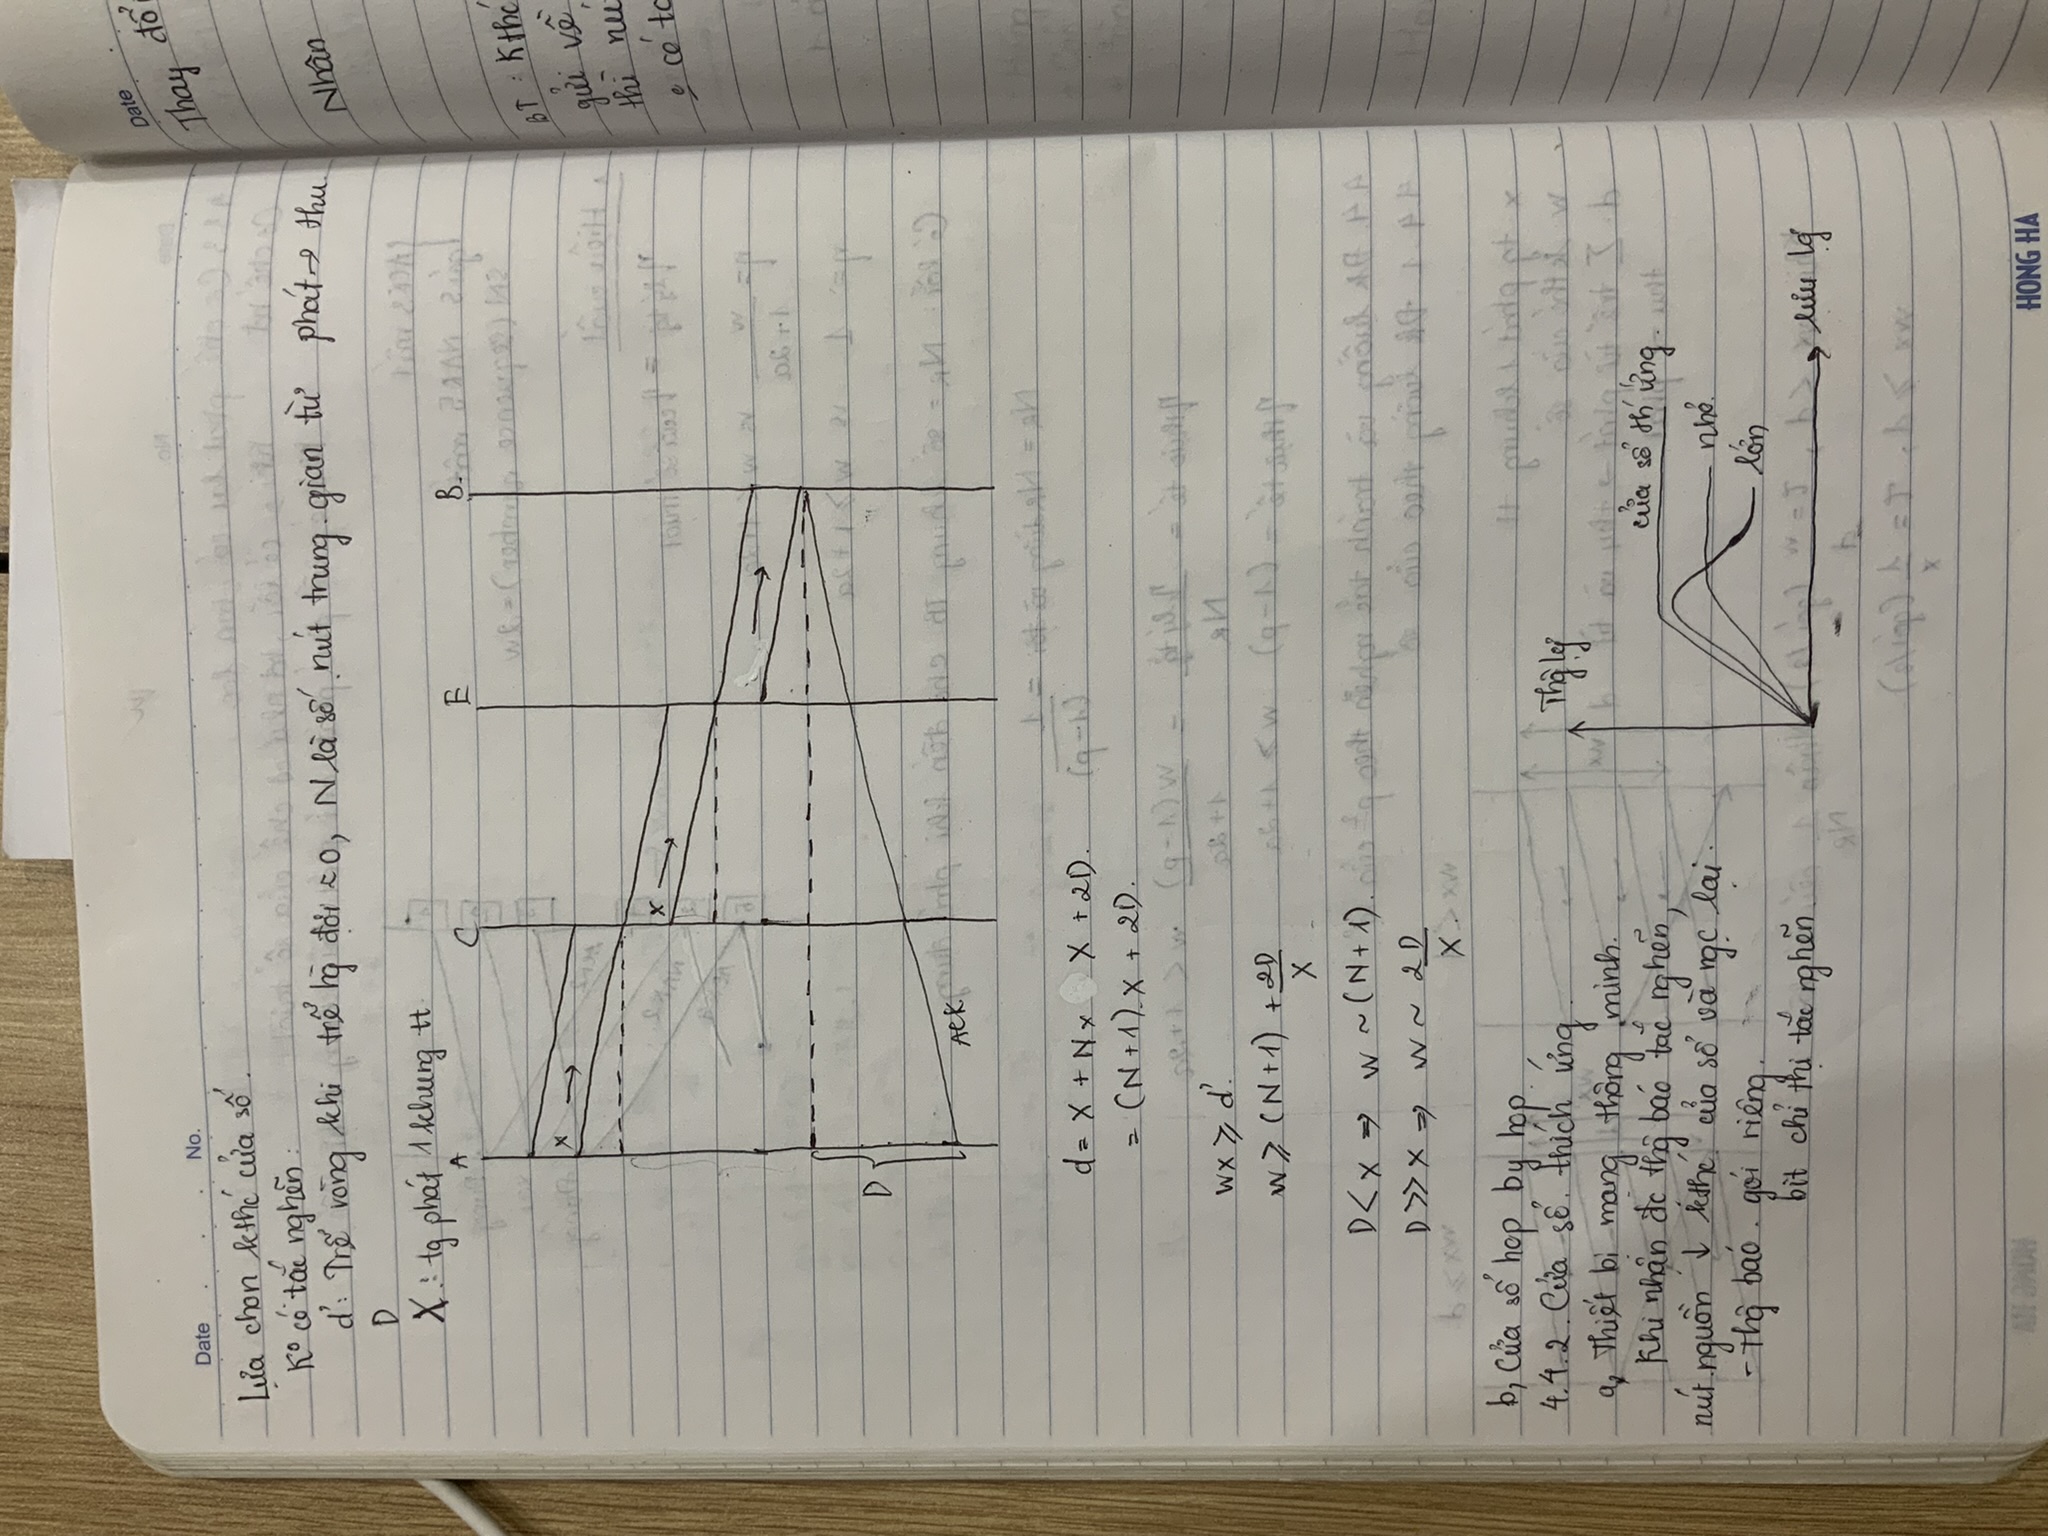 Date No.
Lựa chọn kthć cửa sổ.
K° có tắc nghẽn:
d': Trễ vòng khi trễ hg đợi ≈ 0, N là số nút trung gian từ phát → thu
D
X: tg phát 1 khung tt
A C E B.
X →
X →
→
D
ACK
d = X + N x X + 2D.
= (N+1).X + 2D.
wx ≥ d'.
w ≥ (N+1) + 2D/X
D < X ⇒ w ~ (N+1).
D >> X ⇒ w ~ 2D/X.
b, Cửa sổ hop by hop
4.4.2. Cửa sổ thích ứng
a, Thiết bị mạng thông minh.
Khi nhận đc thg báo tắc nghẽn,
nút nguồn ↓ kthć cửa sổ và ngc lại.
- Thg báo gói riêng.
bit chỉ thị tắc nghẽn
Thg lg
cửa sổ th ứng.
nhỏ.
lớn
lưu lg
HONG HA
Date
Thay đổi
Nhân
BT: Kthć
gửi về
thì nú